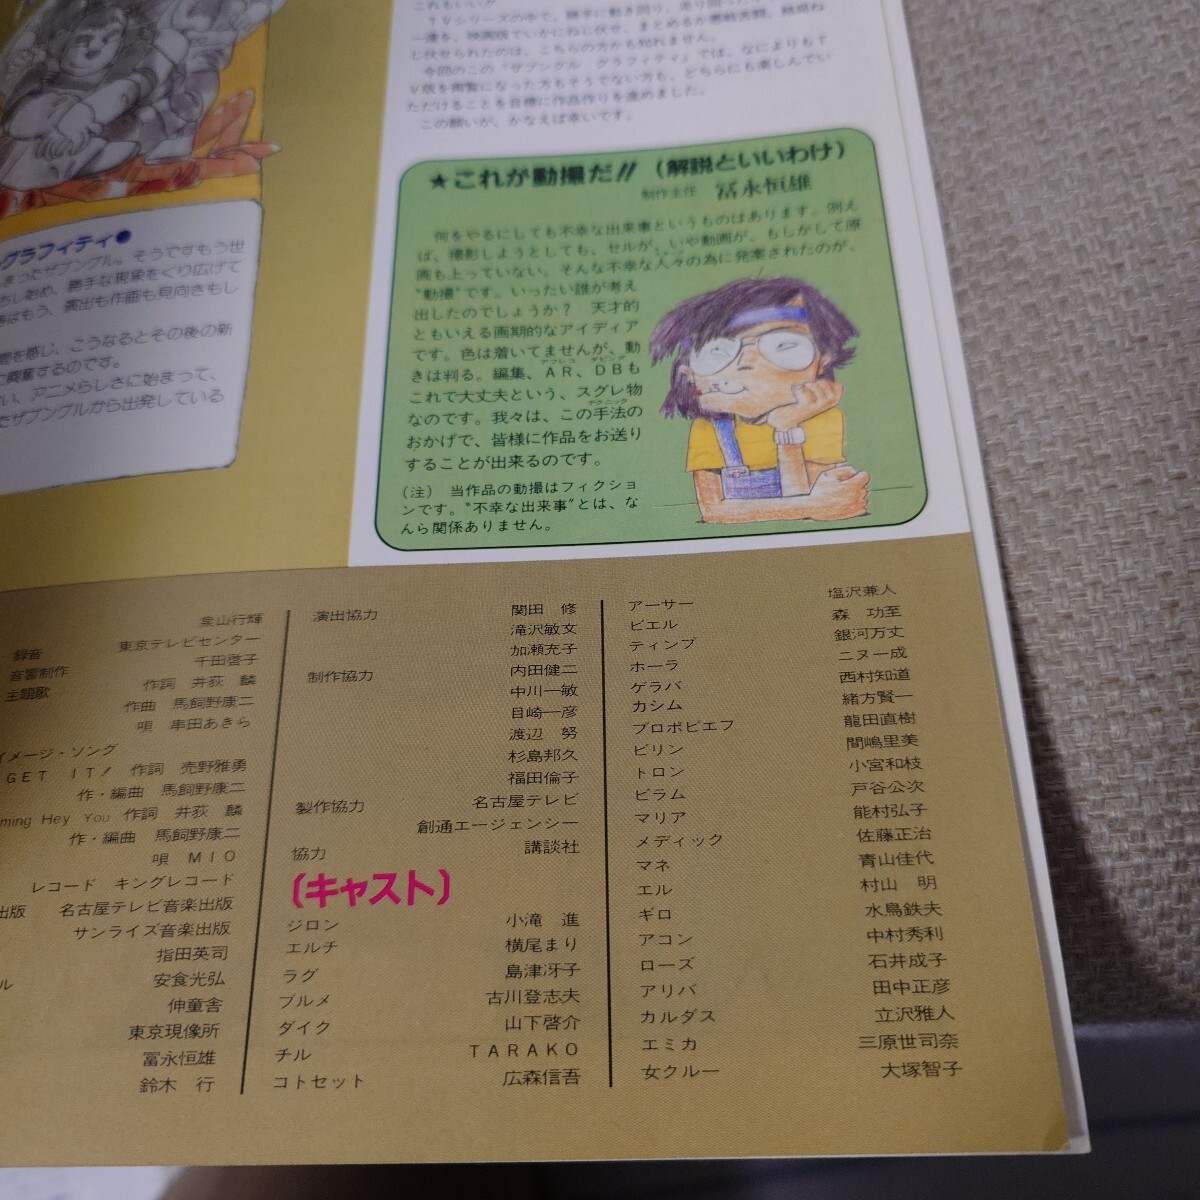 これもいいか
TVシリーズの中で、勝手に動き回り、走り回った
一達を、映画版でいかにねじ伏せ、まとめるか悪戦苦闘、結局ね
じ伏せられたのは、こちらの方かも知れません。
今回のこの『ザブングル グラフィティ』では、なによりもT
V版を御覧になった方もそうでない方も、どちらにも楽しんでい
ただけることを目標に作品作りを進めました。
この願いが、かなえば幸いです。
グラフィティ●
まったザブングル。そうですもう世
らし始め、勝手な現象をくり広げて
時はもう、演出も作画も見向きもし
響を感じ、こうなるとその後の新
に興奮するのです。
い、アニメらしさに始まって、
たザブングルから出発している
★これが動撮だ!!（解説といいわけ）
制作主任 冨永恒雄
何をやるにしても不幸な出来事というものはあります。例え
ば、撮影しようとしても、セルが、いや動画が、もしかして原
画も上っていない。そんな不幸な人々の為に発案されたのが、
"動撮"です。いったい誰が考え
出したのでしょうか？ 天才的
ともいえる画期的なアイディア
です。色は着いてませんが、動
きは判る。編集、AR、DBも
アフレコ ダビング
これで大丈夫という、スグレ物
なのです。我々は、この手法の
テクニック
おかげで、皆様に作品をお送り
することが出来るのです。
（注） 当作品の動撮はフィクショ
ンです。"不幸な出来事"とは、な
んら関係ありません。
泉山行輝
録音 東京テレビセンター
音響制作 千田啓子
主題歌 作詞 井荻 麟
作曲 馬飼野康二
唄 串田あきら
イメージ・ソング
GET IT! 作詞 売野雅勇
作・編曲 馬飼野康二
ming Hey You 作詞 井荻 麟
作・編曲 馬飼野康二
唄 MIO
レコード キングレコード
出版 名古屋テレビ音楽出版
サンライズ音楽出版
指田英司
ル 安食光弘
伸童舎
東京現像所
冨永恒雄
鈴木 行
演出協力 関田 修
滝沢敏文
加瀬充子
制作協力 内田健二
中川一敏
目崎一彦
渡辺 努
杉島邦久
福田倫子
製作協力 名古屋テレビ
創通エージェンシー
協力 講談社
〔キャスト〕
ジロン 小滝 進
エルチ 横尾まり
ラグ 島津冴子
ブルメ 古川登志夫
ダイク 山下啓介
チル TARAKO
コトセット 広森信吾
アーサー 塩沢兼人
ビエル 森 功至
ティンプ 銀河万丈
ホーラ ニヌー成
ゲラバ 西村知道
カシム 緒方賢一
プロポピエフ 龍田直樹
ビリン 間嶋里美
トロン 小宮和枝
ビラム 戸谷公次
マリア 能村弘子
メディック 佐藤正治
マネ 青山佳代
エル 村山 明
ギロ 水鳥鉄夫
アコン 中村秀利
ローズ 石井成子
アリバ 田中正彦
カルダス 立沢雅人
エミカ 三原世司奈
女クルー 大塚智子